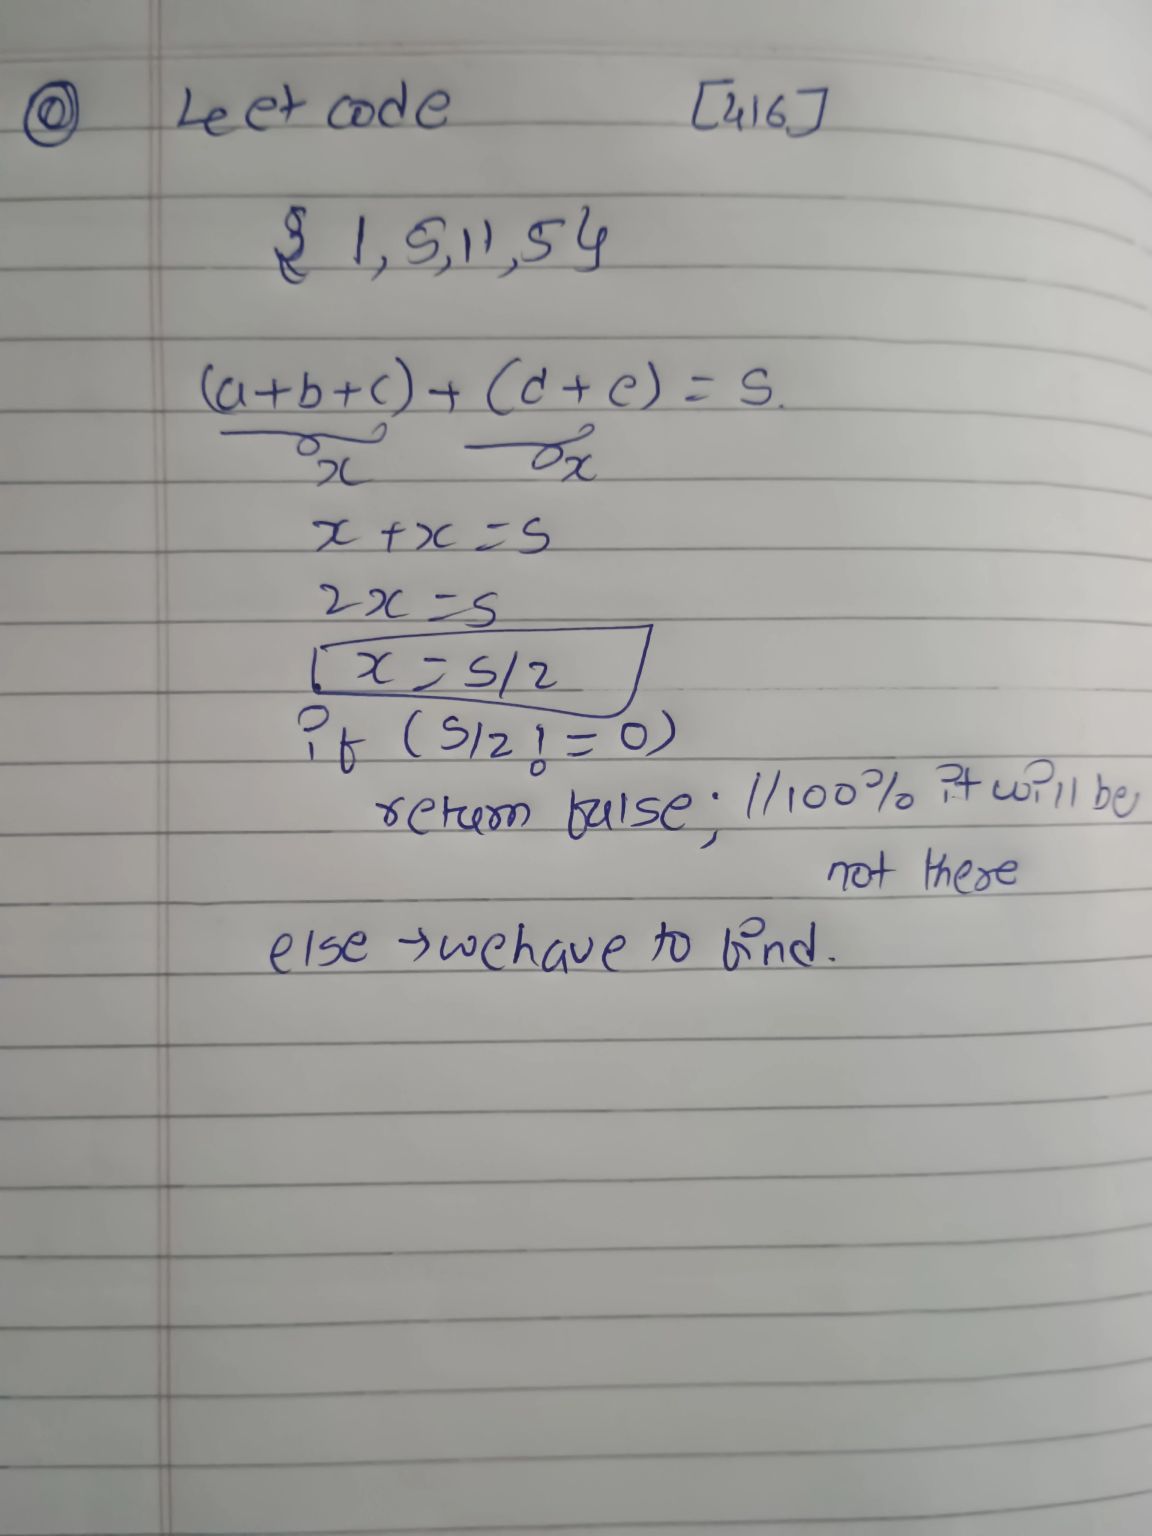 Leetcode [416]
{ 1, 5, 11, 5 }
(a+b+c) + (d+e) = S.
x x
x + x = S
2x = S
x = S/2
if (S/2 != 0)
return false; //100% it will be
not there
else → we have to find.